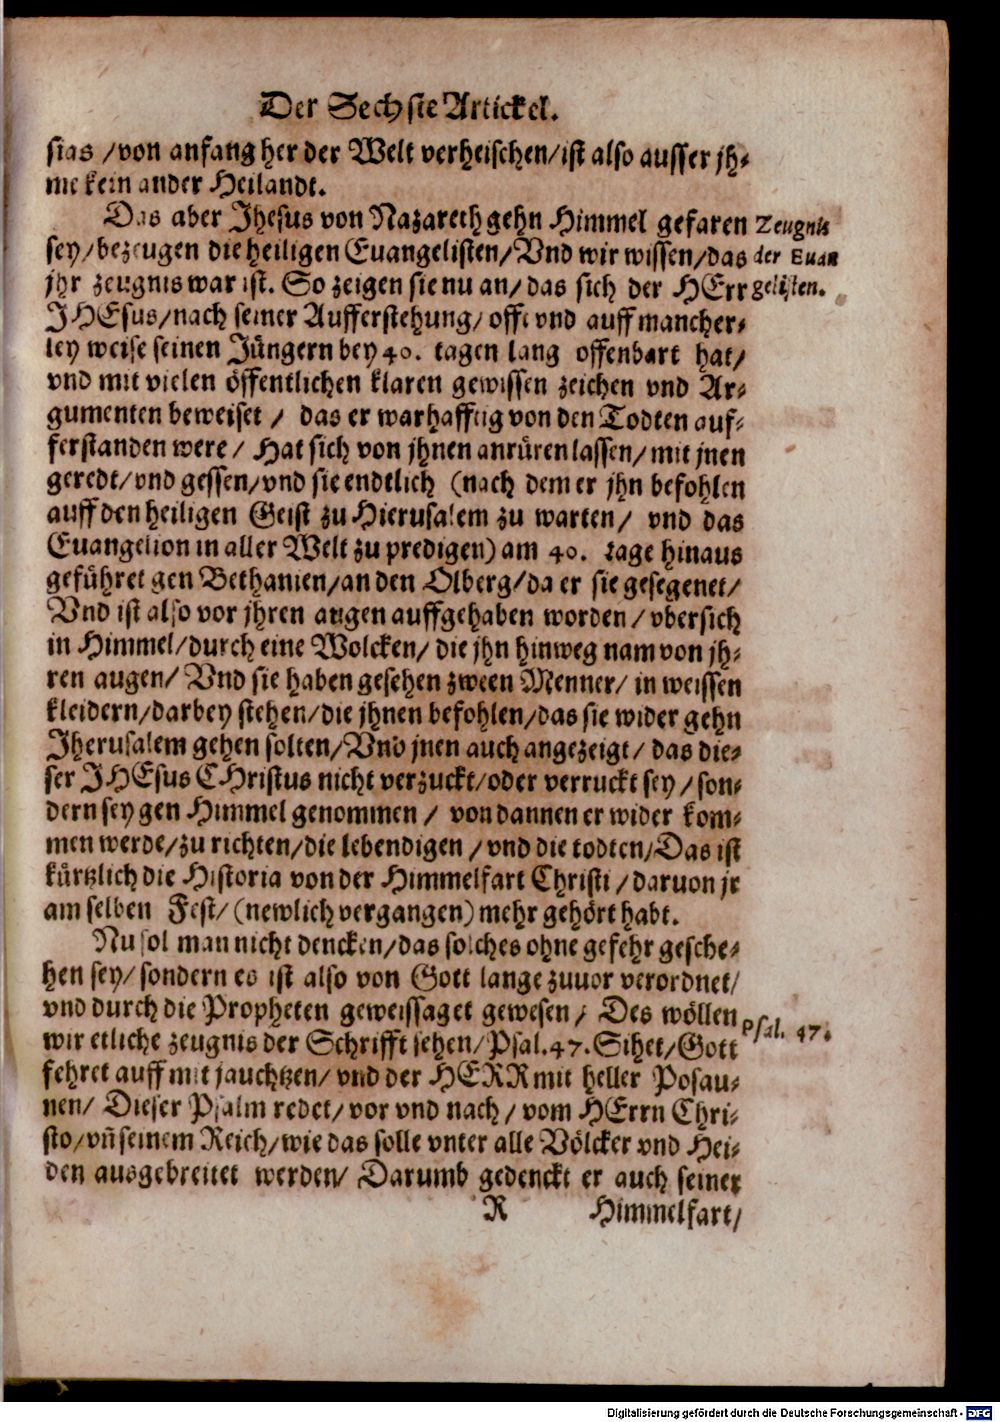 Der Sechste Artickel.
sias /von anfang her der Welt verheischen/ist also ausser jh⸗
me kein ander Heilandt.
Das aber Jhesus von Nazareth gehn Himmel gefaren
sey/bezeugen die heiligen Euangelisten/Vnd wir wissen/das
jhr zeugnis war ist. So zeigen sie nu an/das sich der HErr
JHEsus/nach seiner Aufferstehung/offt vnd auff mancher⸗
ley weise seinen Jüngern bey 40. tagen lang offenbart hat/
vnd mit vielen öffentlichen klaren gewissen zeichen vnd Ar⸗
gumenten beweiset / das er warhafftig von den Todten auf⸗
ferstanden were/ Hat sich von jhnen anrüren lassen/mit jnen
geredt/vnd gessen/vnd sie endtlich (nach dem er jhn befohlen
auff den heiligen Geist zu Hierusalem zu warten/ vnd das
Euangelion in aller Welt zu predigen) am 40. tage hinaus
geführet gen Bethanien/an den Olberg/da er sie gesegenet/
Vnd ist also vor jhren augen auffgehaben worden/vbersich
in Himmel/durch eine Wolcken/ die jhn hinweg nam von jh⸗
ren augen/ Vnd sie haben gesehen zween Menner/ in weissen
kleidern/darbey stehen/die jhnen befohlen/das sie wider gehn
Jherusalem gehen solten/Vnd jnen auch angezeigt/ das die⸗
ser JHEsus CHristus nicht verzuckt/oder verruckt sey/son⸗
dern sey gen Himmel genommen / von dannen er wider kom⸗
men werde/zu richten/die lebendigen /vnd die todten/Das ist
kürtzlich die Historia von der Himmelfart Christi /daruon jr
am selben Fest/(newlich vergangen) mehr gehört habt.
Nu sol man nicht dencken/das solches ohne gefehr gesche⸗
hen sey/sondern es ist also von Gott lange zuuor verordnet/
vnd durch die Propheten geweissaget gewesen / Des wöllen
wir etliche zeugnis der Schrifft sehen/Psal.47.Sihet/Gott
fehret auff mit jauchtzen/vnd der HERR mit heller Posau⸗
nen/ Dieser Psalm redet/vor vnd nach/vom HErrn Chri⸗
sto/vñ seinem Reich/wie das solle vnter alle Völcker vnd Hei⸗
den ausgebreitet werden/ Darumb gedenckt er auch seiner
R Himmelfart/
Zeugnis
der Euan
gelisten.
Psal. 47.
Digitalisierung gefördert durch die Deutsche Forschungsgemeinschaft - DFG